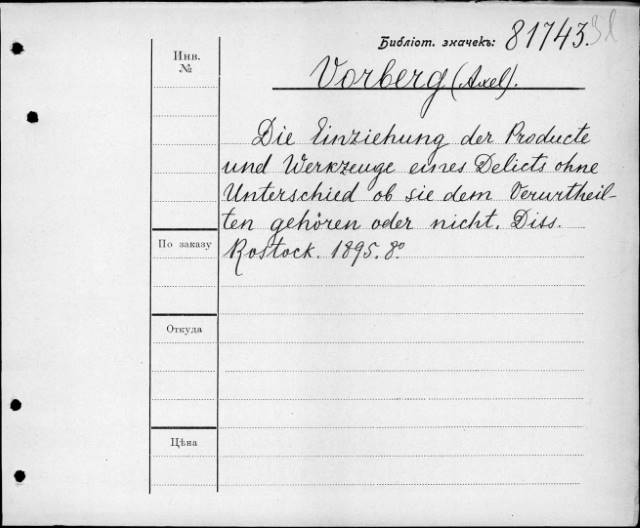 Библіот. значекъ: 81743.
Инв.
№
Vorberg (Axel).
Die Einziehung der Producte
und Werkzeuge eines Delicts ohne
Unterschied ob sie dem Verurtheil-
ten gehören oder nicht. Diss.
По заказу
Rostock. 1895. 8º
Откуда
Цѣна